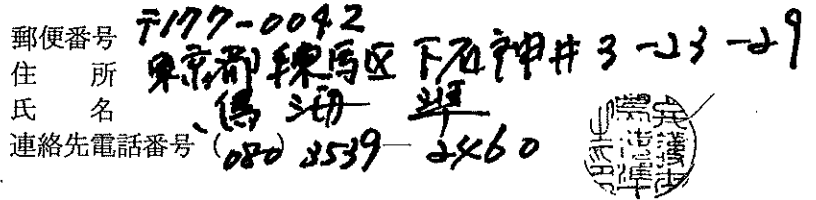 郵便番号 〒177-0042
住所 東京都練馬区下石神井3-23-29
氏名 馬 準
連絡先電話番号 (080) 3539-2460
弁護士